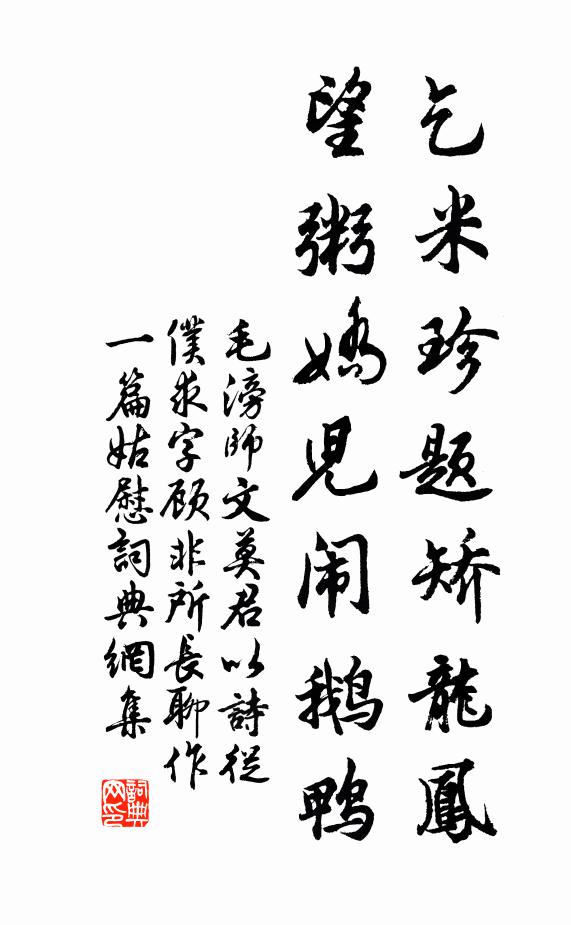 乞米珍题矫龍鳳
望粥嬌兒闹鹅鸭
毛滂師文莫君以詩從
僕求字顾非所長聊作
一篇姑慰詞典網集
詞典网印